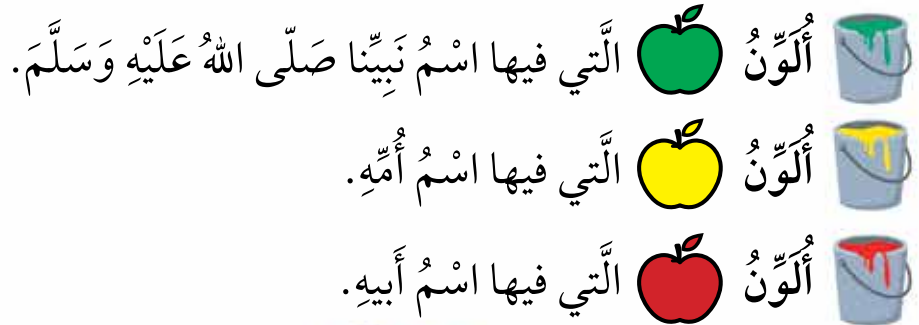 أُلَوِّنُ الَّتي فيها اسْمُ نَبِيِّنا صَلّى اللهُ عَلَيْهِ وَسَلَّمَ.
أُلَوِّنُ الَّتي فيها اسْمُ أُمِّهِ.
أُلَوِّنُ الَّتي فيها اسْمُ أَبيهِ.